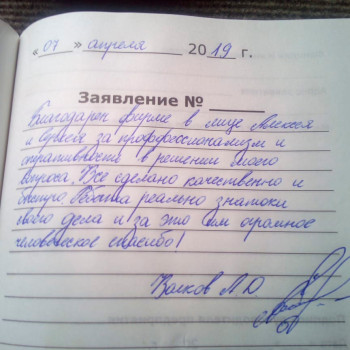 « 07 » апреля 2019 г.
Заявление №
Благодарен фирме в лице Алексея
и за профессионализм и
оперативность в решении моего
вопроса. Все сделано качественно и
быстро. Ребята реально знатоки
своего дела и за это им огромное
человеческое спасибо!
Волков А.О.